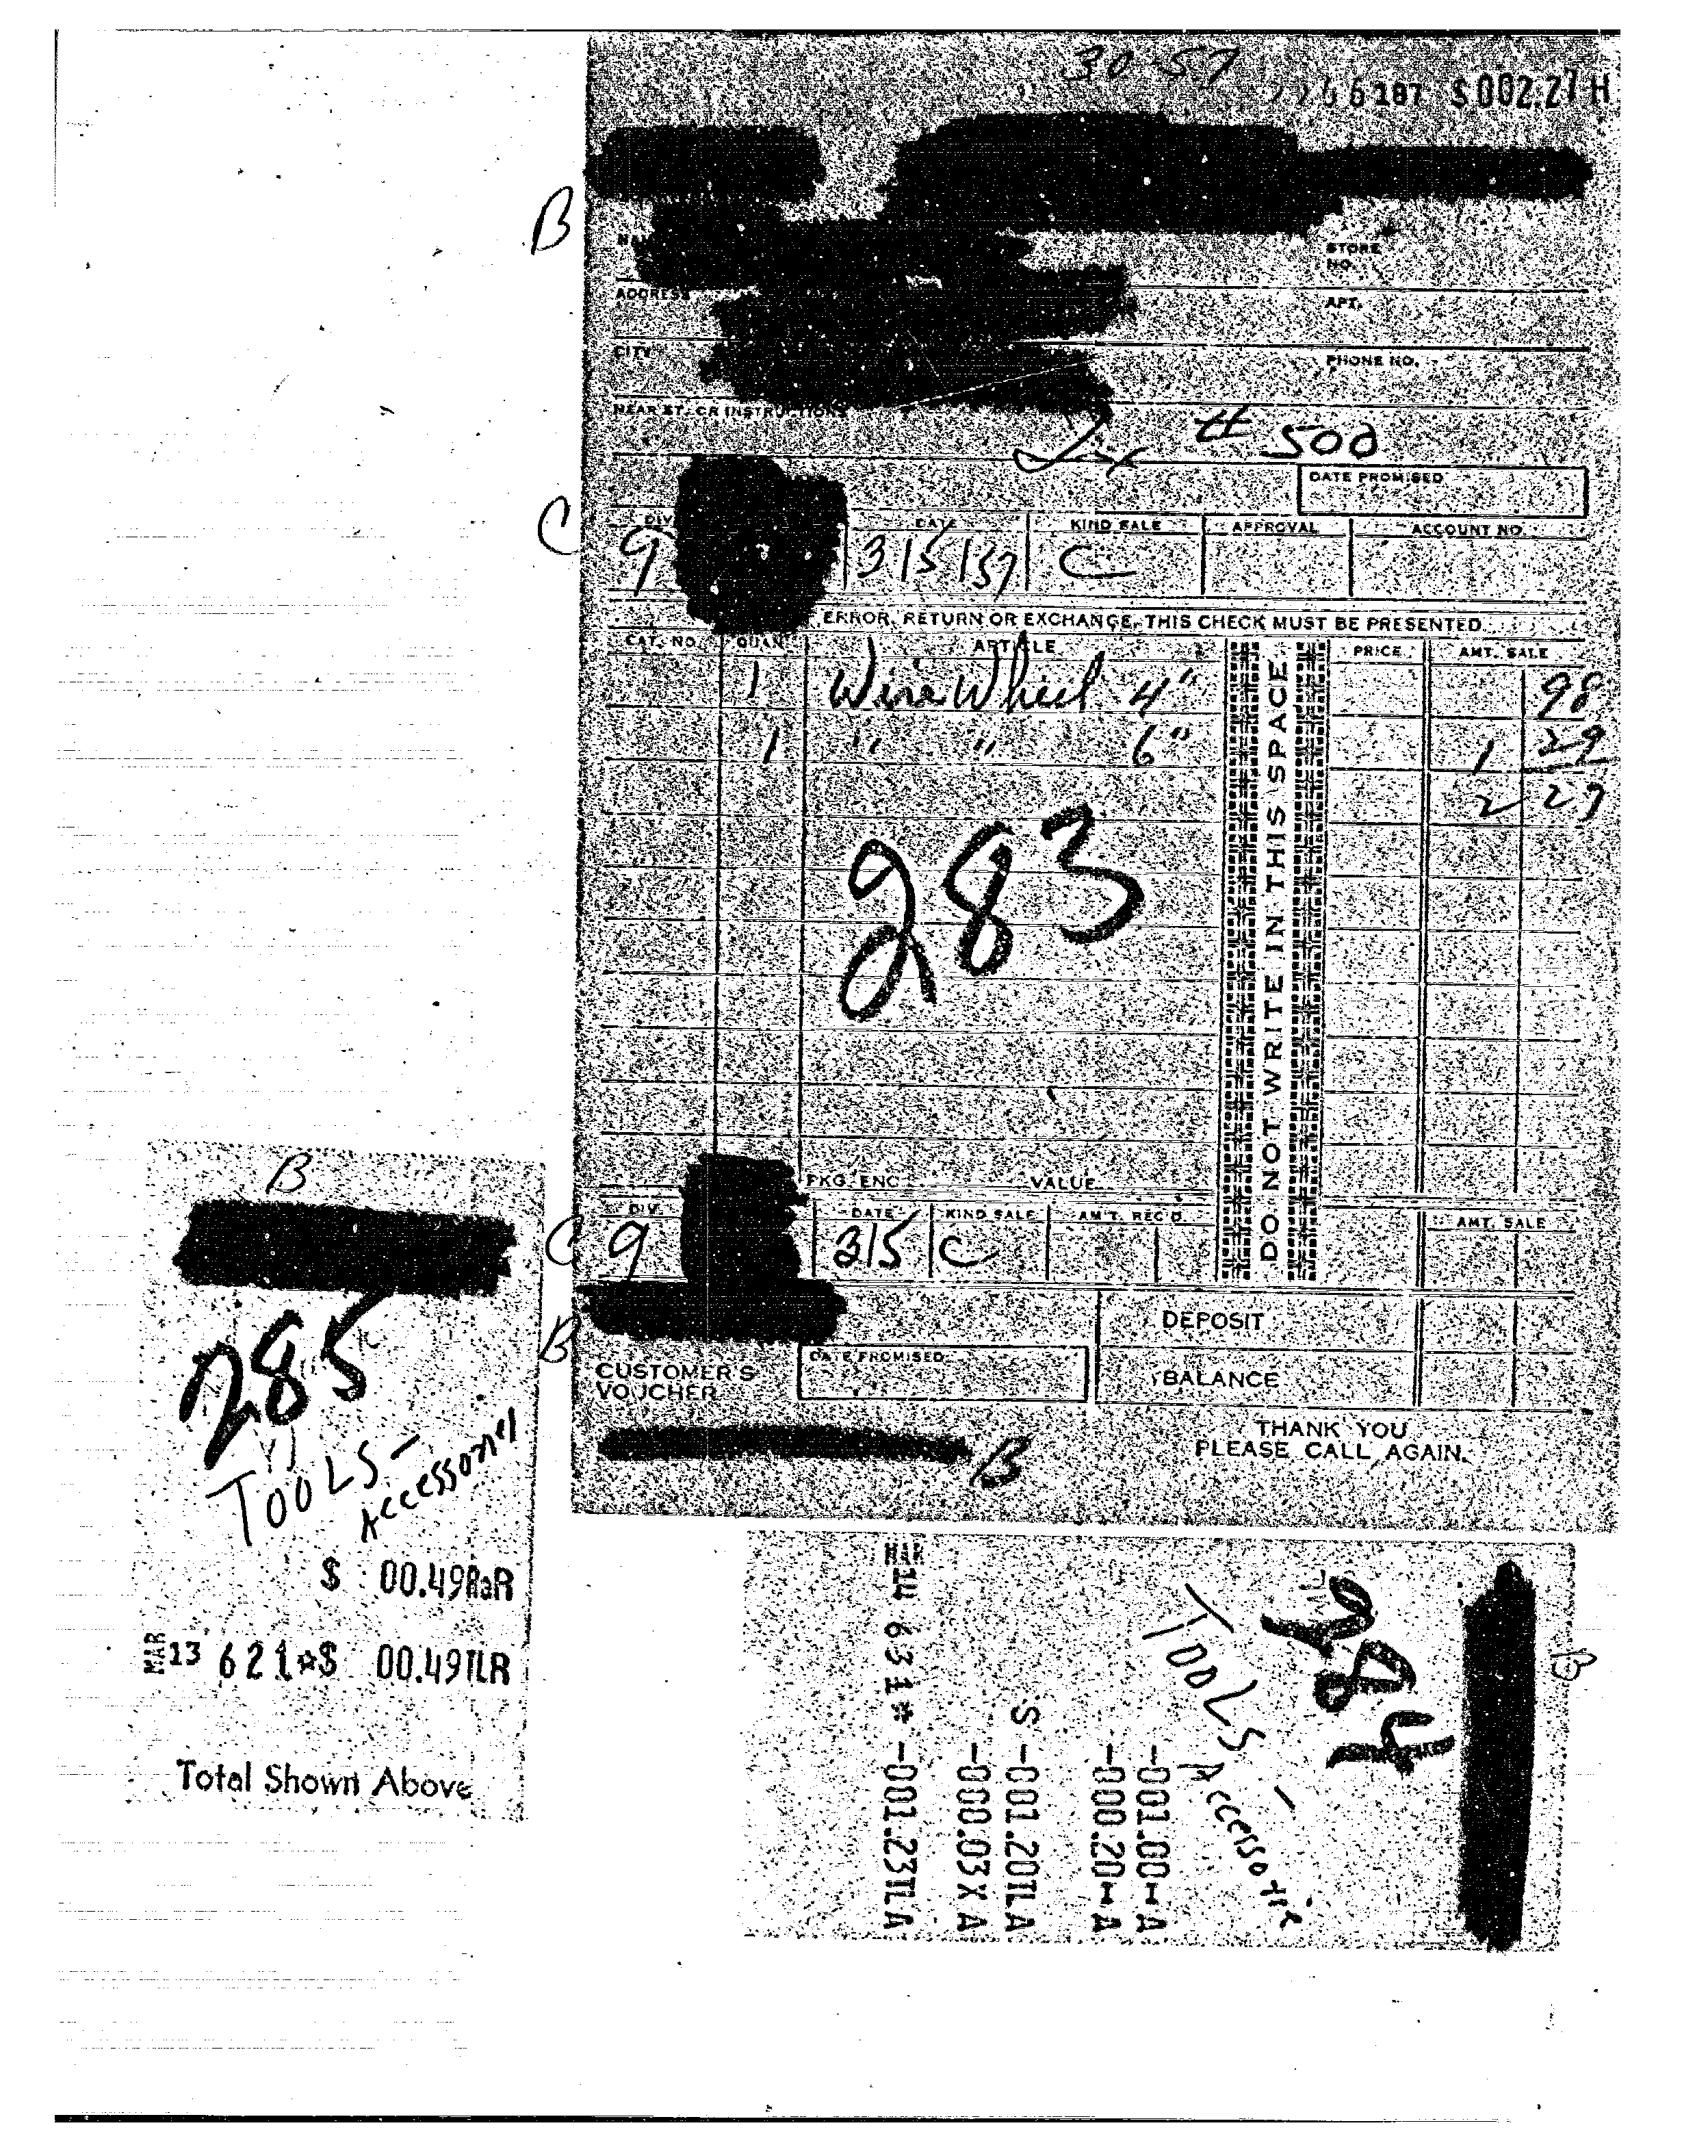 30-57
187 $002.27H
B
STORE
NO.
ADDRESS
APT.
CITY
PHONE NO.
NEAR ST. OR INSTRUCTIONS
# 500
DATE PROMISED
C
DIV. DATE KIND SALE APPROVAL ACCOUNT NO.
9 3/5/57 C
ERROR, RETURN OR EXCHANGE, THIS CHECK MUST BE PRESENTED
CAT. NO. QUAN. ARTICLE PRICE AMT. SALE
1 Wire Wheel 4" 98
1 " " 6" 1 29
2 27
283
DO NOT WRITE IN THIS SPACE
PKG. ENC. VALUE
DIV. DATE KIND SALE AM'T. REC'D. AMT. SALE
C 9 3/5 C
DEPOSIT
B
CUSTOMER'S
VOUCHER
DATE PROMISED
BALANCE
THANK YOU
PLEASE CALL AGAIN.
B
B
285
TOOLS -
Accessories
$ 00.49RaR
MAR 13 621*$ 00.49TLR
Total Shown Above
B
284
TOOLS -
Accessorie
-001.00 I A
-000.20 I A
S -001.20TLA
-000.03 X A
MAR 14 631* -001.23TLA